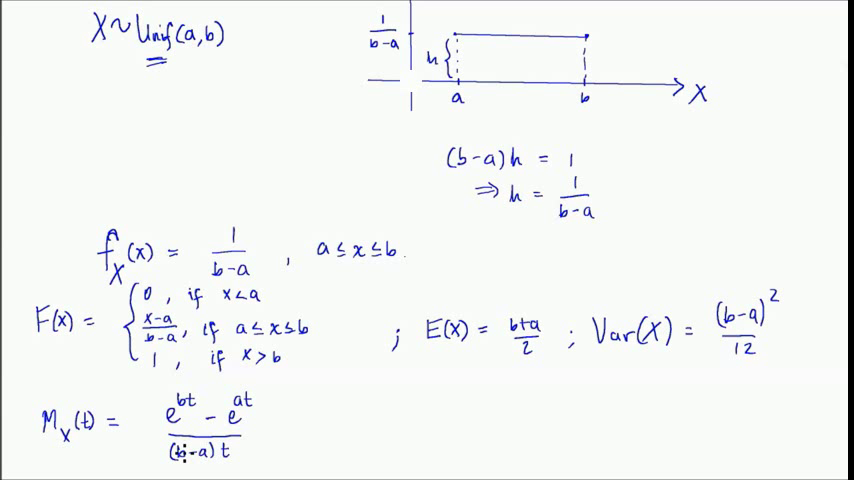 X ~ Unif(a,b)
1/(b-a)
h
a
b
X
(b-a)h = 1
⇒ h = 1/(b-a)
f_X(x) = 1/(b-a) , a ≤ x ≤ b.
F(x) = { 0 , if x < a
(x-a)/(b-a) , if a ≤ x ≤ b
1 , if x > b
; E(X) = (b+a)/2 ; Var(X) = (b-a)²/12
M_X(t) = (e^{bt} - e^{at})/((b-a)t)